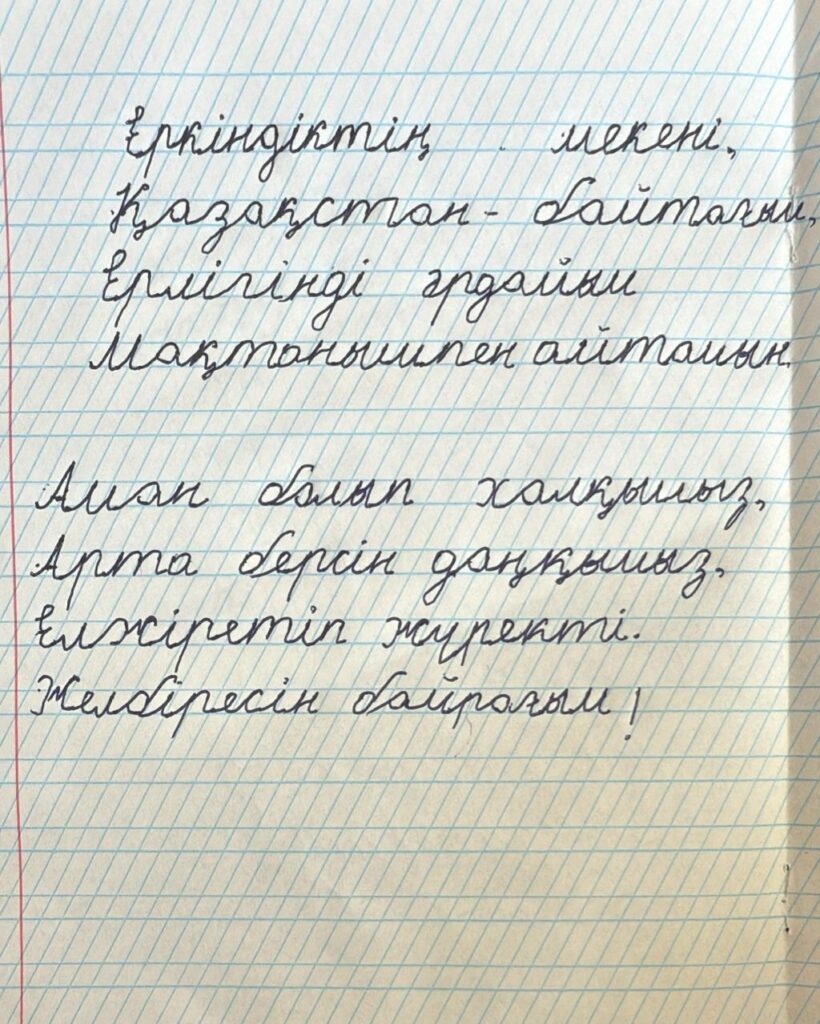 Еркіндіктің мекені,
Қазақстан - байтағым,
Ерлігінді әрдайым
Мақтанышпен айтамын.
Аман болып халқымыз,
Арта берсін даңқымыз,
Елжіретіп жүректі.
Желбіресін байрағым!